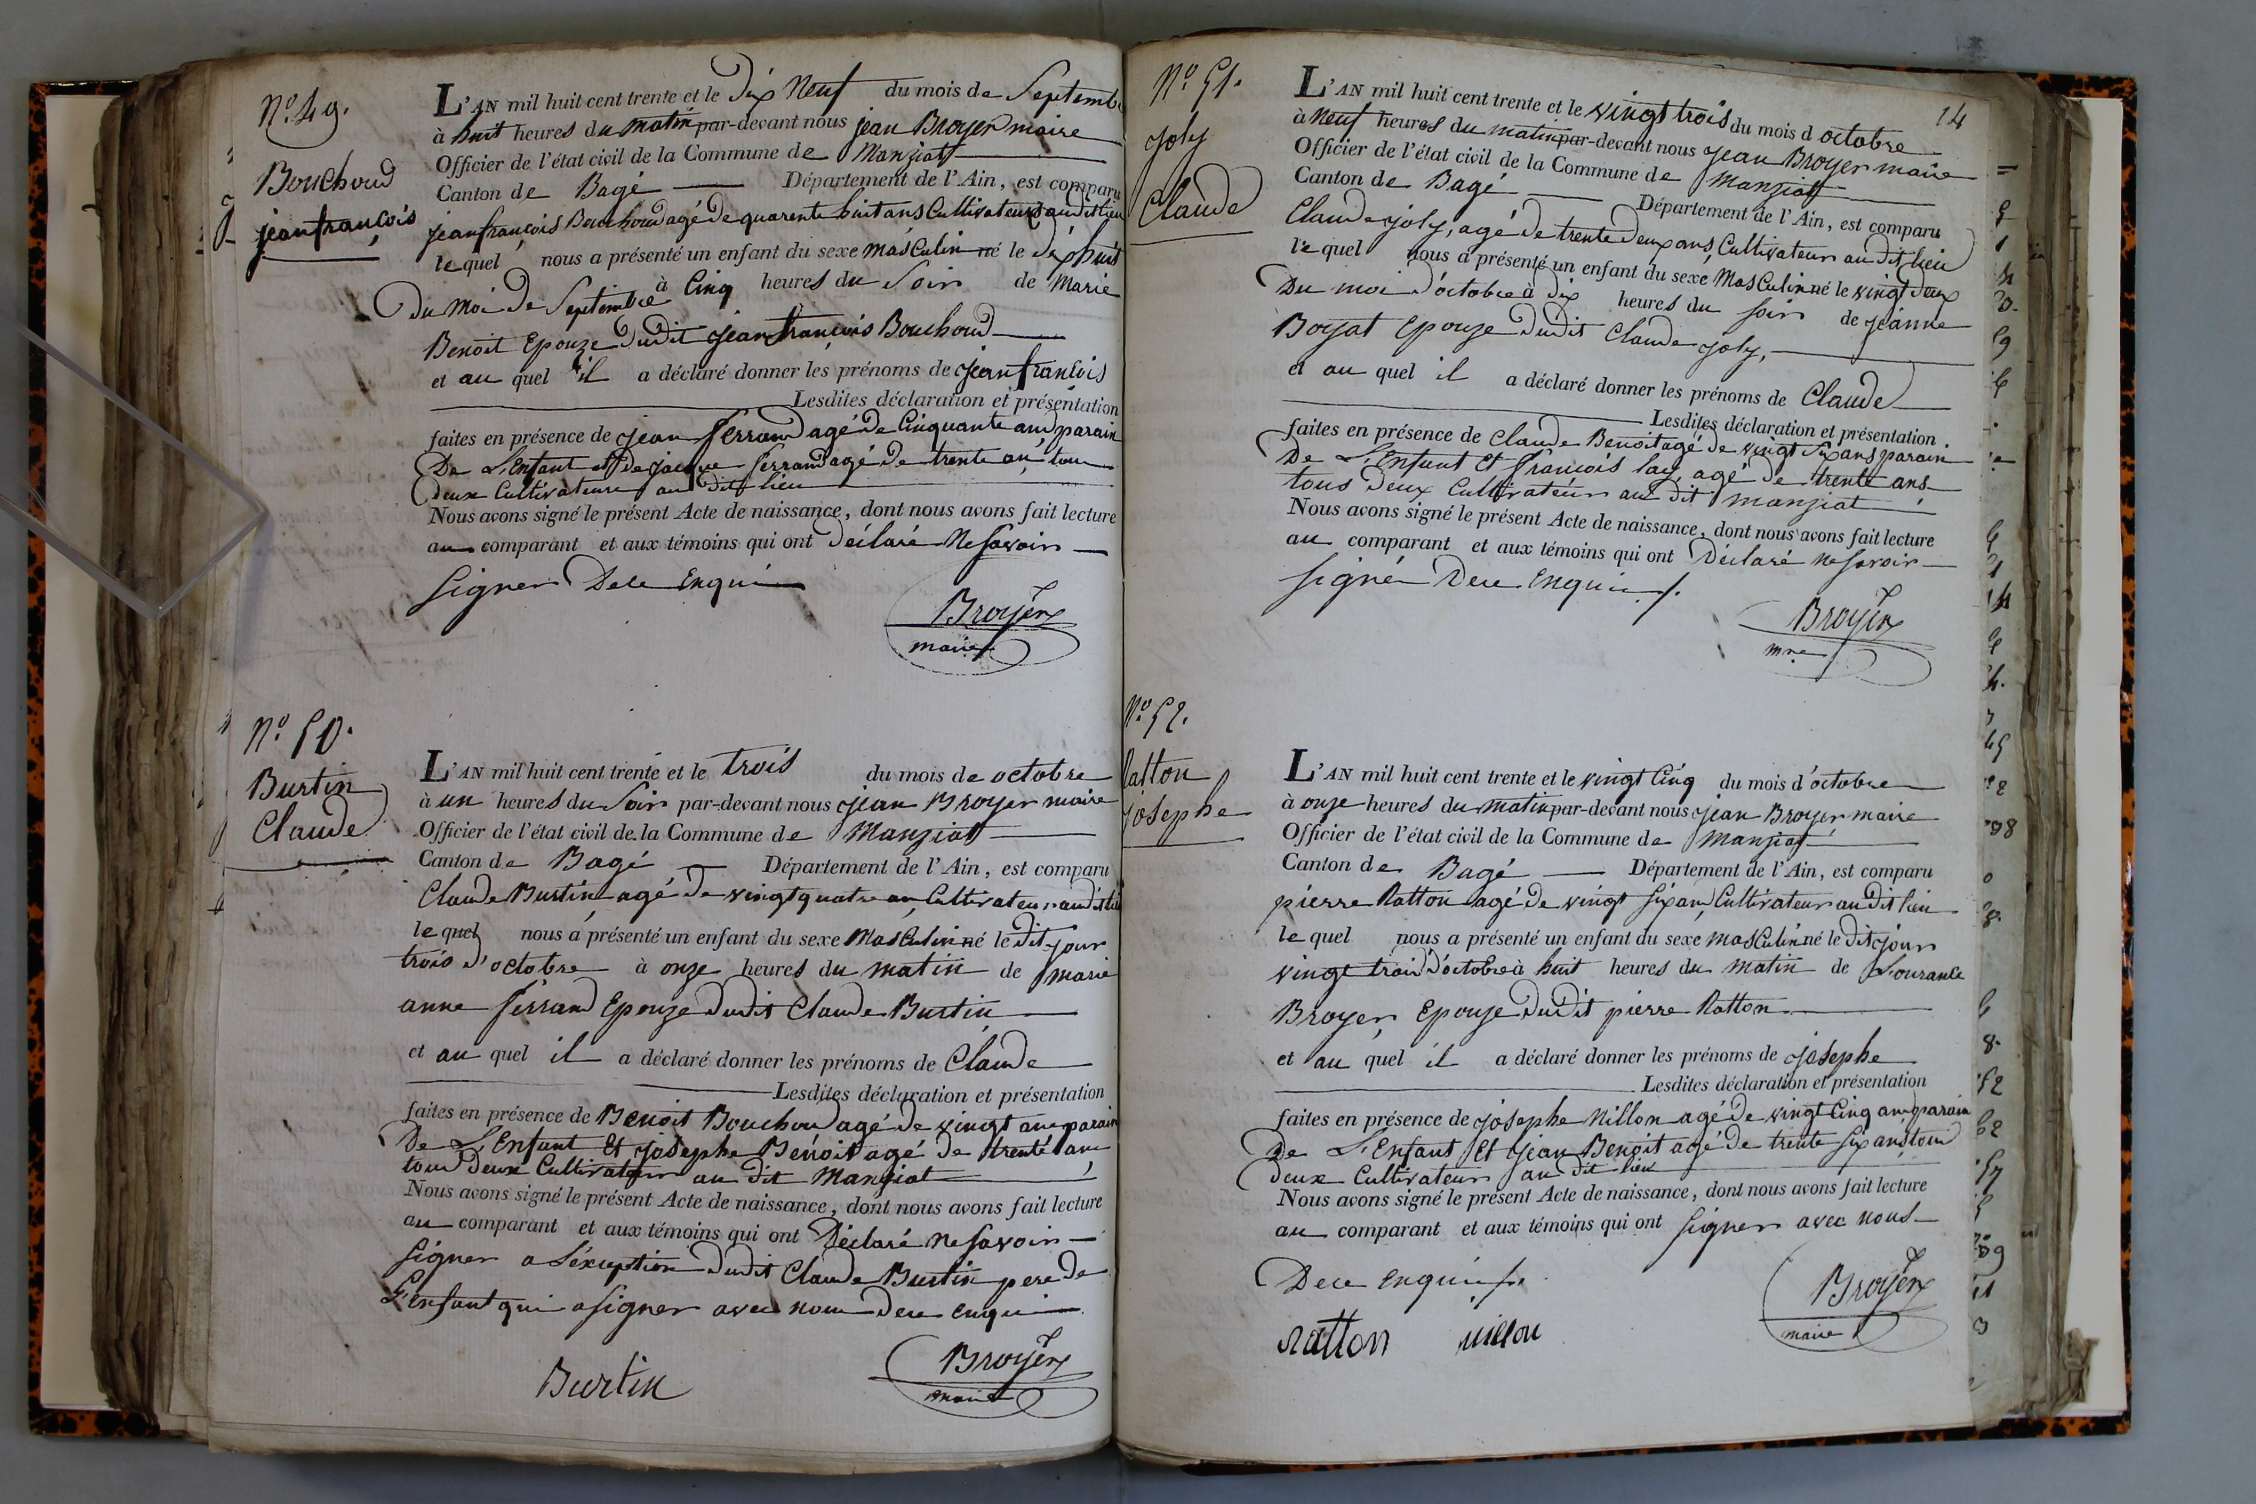 N.º 49.
Bouchoud
jean françois
L'AN mil huit cent trente et le dix Neuf du mois de Septembre
à huit heures du matin par-devant nous jean Broyer maire
Officier de l'état civil de la Commune de Manziat
Canton de Bagé Département de l'Ain, est comparu
jean françois Bouchoud agé de quarente huit ans Cultivateur audit lieu
le quel nous a présenté un enfant du sexe masculin né le dix huit
Du moi de Septembre à Cinq heures du Soir de Marie
Benoit Epouze dudit jean françois Bouchoud
et au quel il a déclaré donner les prénoms de jean francois
Lesdites déclaration et présentation
faites en présence de jean ferrand agé de Cinquante ans parain
De L'Enfant et de jacque ferrand agé de trente an, tou
deux Cultivateurs au dit lieu
Nous avons signé le présent Acte de naissance, dont nous avons fait lecture
au comparant et aux témoins qui ont Déclaré Ne savoir
Signer Dece Enqui
Broyer
maire
N.º 50.
Burtin
Claude
L'AN mil huit cent trente et le trois du mois de octobre
à un heures du Soir par-devant nous jean Broyer maire
Officier de l'état civil de la Commune de Manziat
Canton de Bagé Département de l'Ain, est comparu
Claude Burtin agé de vingt quatre an, Cultivateur audit lieu
le quel nous a présenté un enfant du sexe Masculin né le dit jour
trois d'octobre à onze heures du matin de marie
anne ferrand Epouze dudit Claude Burtin
et au quel il a déclaré donner les prénoms de Claude
Lesdites déclaration et présentation
faites en présence de Benoit Bouchoud agé de vingt ans parain
De L'Enfant Et josephe Benoit agé de trente ans
tous deux Cultivateur au dit Manziat
Nous avons signé le présent Acte de naissance, dont nous avons fait lecture
au comparant et aux témoins qui ont Déclaré Ne savoir
signer a l'éxception dudit Claude Burtin pere de
L'enfant qui a signer avec nous Dece enqui
Burtin
Broyer
maire
14
N.º 51.
joly
Claude
L'AN mil huit cent trente et le vingt trois du mois d octobre
à Neuf heures du matin par-devant nous jean Broyer maire
Officier de l'état civil de la Commune de Manziat
Canton de Bagé Département de l'Ain, est comparu
Claude joly, agé de trente deux ans, Cultivateur au dit lieu
le quel nous a présenté un enfant du sexe Masculin né le vingt deux
Du moi d'octobre à dix heures du soir de jeanne
Boyat Epouze dudit Claude joly,
et au quel il a déclaré donner les prénoms de Claude
Lesdites déclaration et présentation
faites en présence de Claude Benoit agé de vingt six ans parain
De L'Enfant Et francois lay, agé de trente ans
tous deux Cultivateur au dit manziat
Nous avons signé le présent Acte de naissance, dont nous avons fait lecture
au comparant et aux témoins qui ont Déclaré Ne savoir
signé Dece Enqui
Broyer
mre
N.º 52.
Ratton
josephe
L'AN mil huit cent trente et le vingt Cinq du mois d'octobre
à onze heures du matin par-devant nous jean Broyer maire
Officier de l'état civil de la Commune de Manziat
Canton de Bagé Département de l'Ain, est comparu
pierre Ratton agé de vingt six ans Cultivateur au dit lieu
le quel nous a présenté un enfant du sexe masculin né le dit jour
vingt trois d'octobre à huit heures du matin de Lourance
Broyer Epouze dudit pierre Ratton
et au quel il a déclaré donner les prénoms de josephe
Lesdites déclaration et présentation
faites en présence de josephe Nillon agé de vingt Cinq ans parain
De L'Enfant Et jean Benoit agé de trente six ans tous
deux Cultivateur au dit lieu
Nous avons signé le présent Acte de naissance, dont nous avons fait lecture
au comparant et aux témoins qui ont signer avec nous
Dece enqui
Broyer
maire
ratton nillon